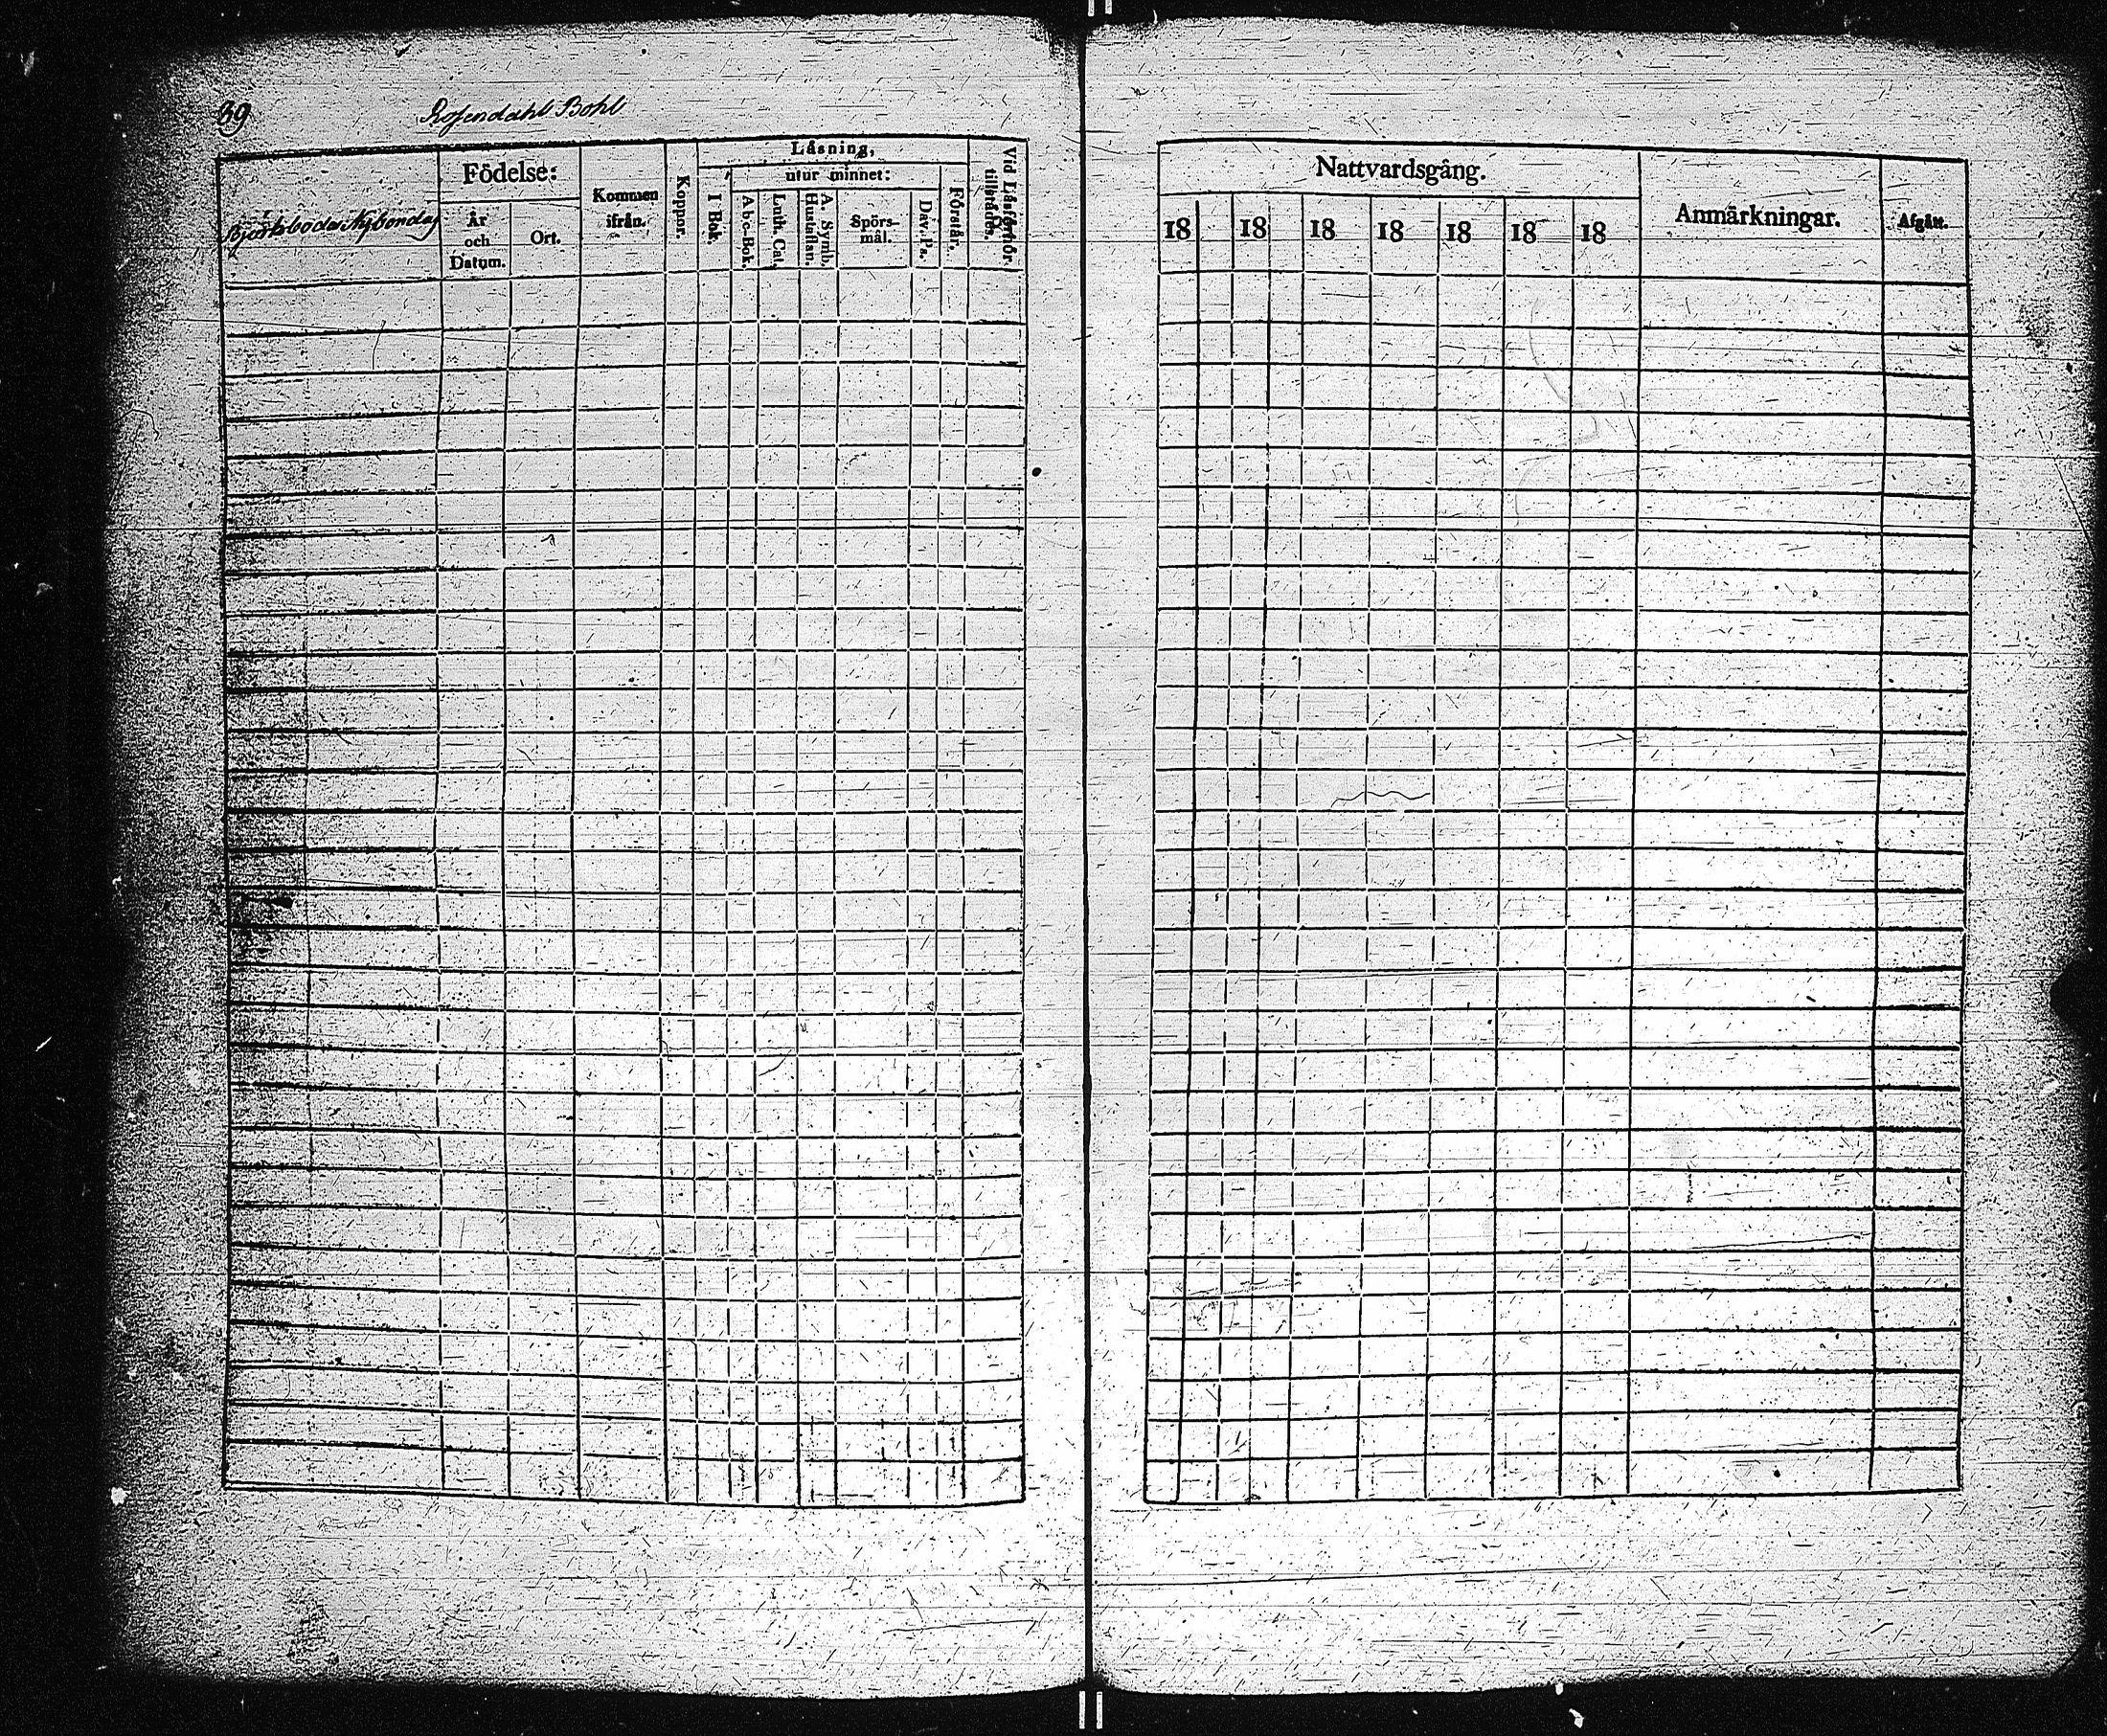 39
Rosendahls Bohl
Björkboda Nybonda
Födelse:
År
och
Datum.
Ort.
Kommen
ifrån.
Koppor.
Läsning,
I Bok.
utur minnet:
Abc-Bok.
Luth. Cat.
A. Symb.
Hustaflan.
Spörs-
mål.
Dav. Ps.
Förstår.
Vid Läsförhör.
tillstädes.
Nattvardsgång.
18 18 18 18 18 18 18
Anmärkningar.
Afgått.